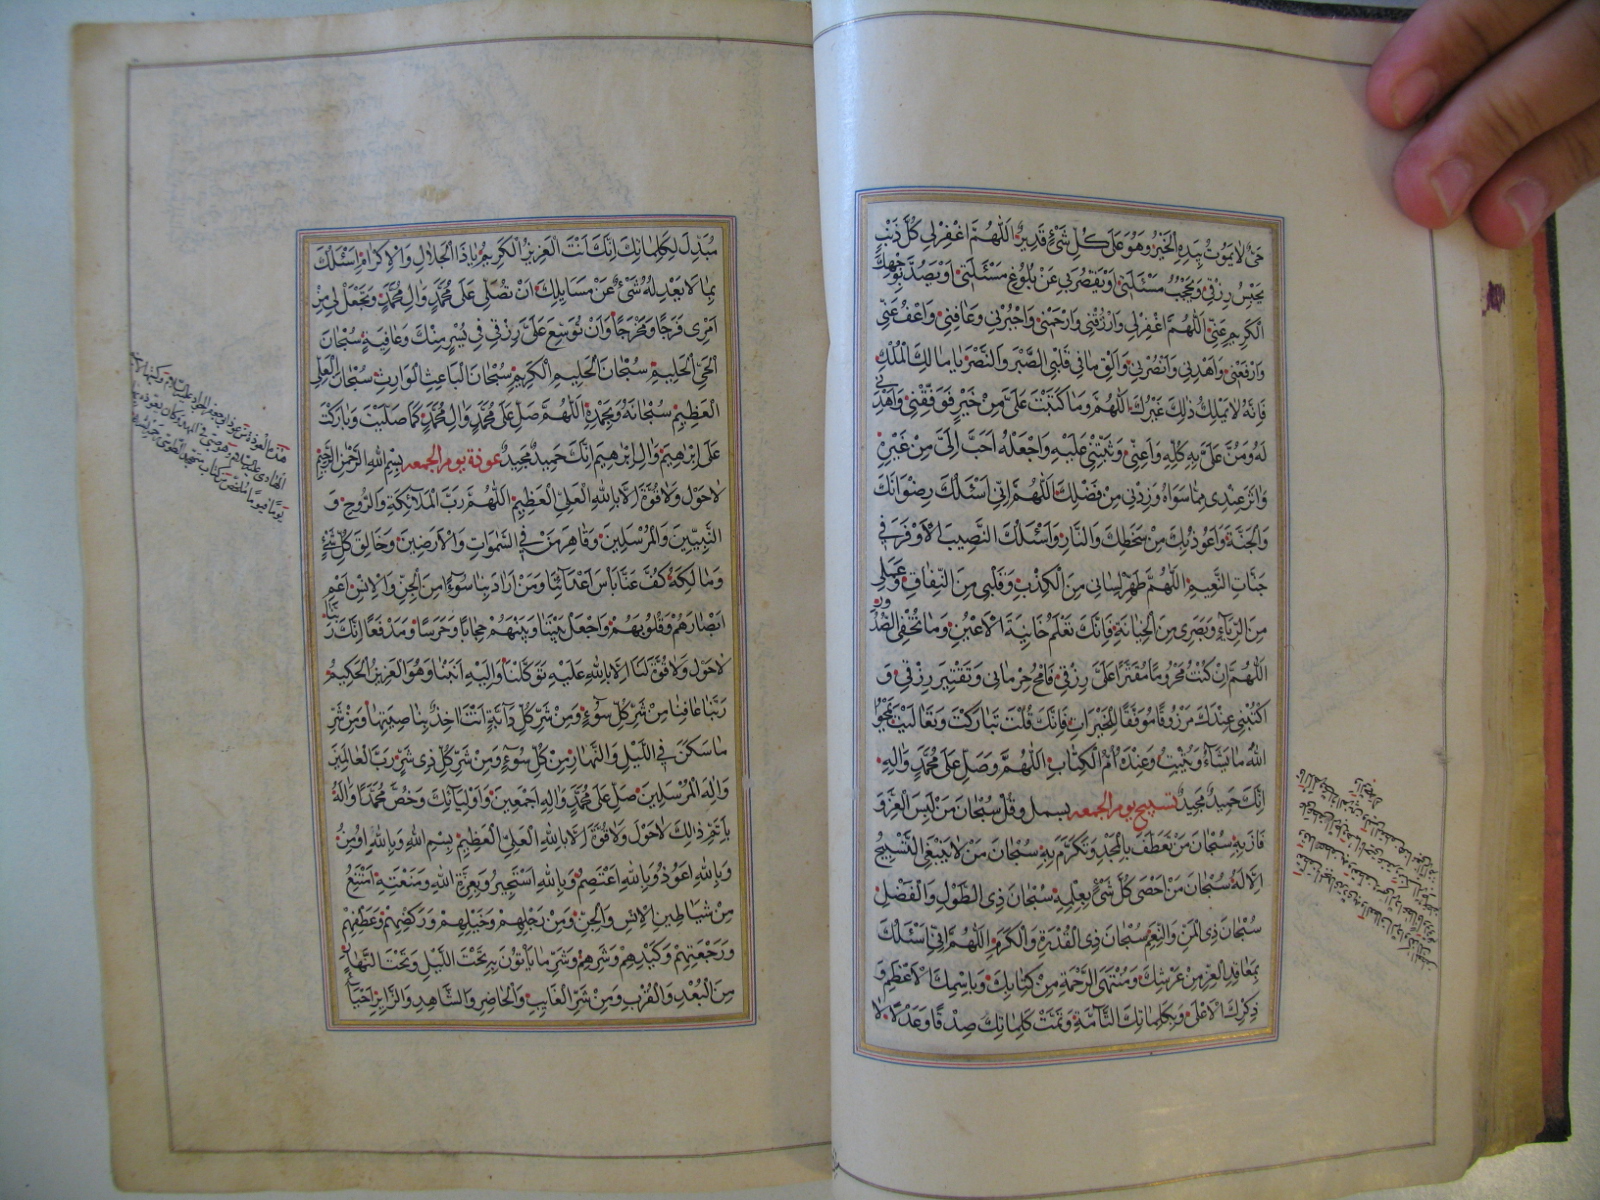 حَيٌّ لا يَمُوتُ بِيَدِهِ الْخَيْرُ وَهُوَ عَلَىٰ كُلِّ شَيْءٍ قَدِيرٌ اَللّٰهُمَّ اغْفِرْ لِي كُلَّ ذَنْبٍ
يَحْبِسُ رِزْقِي وَيَحْجُبُ مَسْئَلَتِي اَوْ يَقْصُرُ بِي عَنْ بُلُوغِ مَسْئَلَتِي اَوْ يَصُدُّ بِوَجْهِكَ
الْكَرِيمِ عَنِّي اَللّٰهُمَّ اغْفِرْ لِي وَارْزُقْنِي وَارْحَمْنِي وَاجْبُرْنِي وَعَافِنِي وَاعْفُ عَنِّي
وَارْفَعْنِي وَاهْدِنِي وَانْصُرْنِي وَاَلْقِ مَا فِي قَلْبِي الصَّبْرَ وَالنَّصْرَ يَا مَالِكَ الْمُلْكِ
فَاِنَّهُ لا يَمْلِكُ ذٰلِكَ غَيْرُكَ اَللّٰهُمَّ وَمَا كَتَبْتَ عَلَيَّ مِنْ خَيْرٍ فَوَفِّقْنِي وَاهْدِنِي
لَهُ وَمُنَّ عَلَيَّ بِهِ كُلِّهِ وَاَعِنِّي وَثَبِّتْنِي عَلَيْهِ وَاجْعَلْهُ اَحَبَّ اِلَيَّ مِنْ غَيْرِهِ
وَاٰثَرَ عِنْدِي مِمَّا سِوَاهُ وَزِدْنِي مِنْ فَضْلِكَ اَللّٰهُمَّ اِنِّي اَسْئَلُكَ رِضْوَانَكَ
وَالْجَنَّةَ وَاَعُوذُ بِكَ مِنْ سَخَطِكَ وَالنَّارِ وَاَسْئَلُكَ النَّصِيبَ الْاَوْفَرَ فِي
جَنَّاتِ النَّعِيمِ اَللّٰهُمَّ طَهِّرْ لِسَانِي مِنَ الْكِذْبِ وَقَلْبِي مِنَ النِّفَاقِ وَعَمَلِي
مِنَ الرِّيَاءِ وَبَصَرِي مِنَ الْخِيَانَةِ فَاِنَّكَ تَعْلَمُ خَائِنَةَ الْاَعْيُنِ وَمَا تُخْفِي الصُّدُورُ
اَللّٰهُمَّ اِنْ كُنْتُ مَحْرُومًا مُقَتَّرًا عَلَيَّ رِزْقِي فَامْحُ حِرْمَانِي وَتَقْتِيرَ رِزْقِي وَ
اكْتُبْنِي عِنْدَكَ مَرْزُوقًا مُوَفَّقًا لِلْخَيْرَاتِ فَاِنَّكَ قُلْتَ تَبَارَكْتَ وَتَعَالَيْتَ يَمْحُوا
اللّٰهُ مَا يَشَاءُ وَيُثْبِتُ وَعِنْدَهُ اُمُّ الْكِتَابِ اَللّٰهُمَّ وَصَلِّ عَلَىٰ مُحَمَّدٍ وَاٰلِهِ
اِنَّكَ حَمِيدٌ مَجِيدٌ تسبيح يوم الجمعه بسمل وقُلْ سُبْحَانَ مَنْ لَبِسَ الْعِزَّ وَ
فَازَ بِهِ سُبْحَانَ مَنْ تَعَطَّفَ بِالْمَجْدِ وَتَكَرَّمَ بِهِ سُبْحَانَ مَنْ لا يَنْبَغِي التَّسْبِيحُ
اِلَّا لَهُ سُبْحَانَ مَنْ اَحْصَىٰ كُلَّ شَيْءٍ بِعِلْمِهِ سُبْحَانَ ذِي الطَّوْلِ وَالْفَضْلِ
سُبْحَانَ ذِي الْمَنِّ وَالنِّعَمِ سُبْحَانَ ذِي الْقُدْرَةِ وَالْكَرَمِ اَللّٰهُمَّ اِنِّي اَسْئَلُكَ
بِمَعَاقِدِ الْعِزِّ مِنْ عَرْشِكَ وَمُنْتَهَى الرَّحْمَةِ مِنْ كِتَابِكَ وَبِاسْمِكَ الْاَعْظَمِ وَ
ذِكْرِكَ الْاَعْلَىٰ وَبِكَلِمَاتِكَ التَّامَّةِ وَتَمَّتْ كَلِمَاتُكَ صِدْقًا وَعَدْلًا لا
مُبَدِّلَ لِكَلِمَاتِكَ اِنَّكَ اَنْتَ الْعَزِيزُ الْكَرِيمُ يَا ذَا الْجَلَالِ وَالْاِكْرَامِ اَسْئَلُكَ
بِمَا لا يَعْدِلُهُ شَيْءٌ مِنْ مَسَائِلِكَ اَنْ تُصَلِّيَ عَلَىٰ مُحَمَّدٍ وَاٰلِ مُحَمَّدٍ وَتَجْعَلَ لِي مِنْ
اَمْرِي فَرَجًا وَمَخْرَجًا وَاَنْ تُوَسِّعَ عَلَيَّ رِزْقِي فِي يُسْرٍ مِنْكَ وَعَافِيَةٍ سُبْحَانَ
الْحَيِّ الْحَلِيمِ سُبْحَانَ الْحَلِيمِ الْكَرِيمِ سُبْحَانَ الْبَاعِثِ الْوَارِثِ سُبْحَانَ الْعَلِيِّ
الْعَظِيمِ سُبْحَانَهُ وَبِحَمْدِهِ اَللّٰهُمَّ صَلِّ عَلَىٰ مُحَمَّدٍ وَاٰلِ مُحَمَّدٍ كَمَا صَلَّيْتَ وَبَارَكْتَ
عَلَىٰ اِبْرٰهِيمَ وَاٰلِ اِبْرٰهِيمَ اِنَّكَ حَمِيدٌ مَجِيدٌ عوذة يوم الجمعه بِسْمِ اللّٰهِ الرَّحْمٰنِ الرَّحِيمِ
لا حَوْلَ وَلا قُوَّةَ اِلَّا بِاللّٰهِ الْعَلِيِّ الْعَظِيمِ اَللّٰهُمَّ رَبَّ الْمَلٰئِكَةِ وَالرُّوحِ وَ
النَّبِيِّينَ وَالْمُرْسَلِينَ وَقَاهِرَ مَنْ فِي السَّمٰوَاتِ وَالْاَرَضِينَ وَخَالِقَ كُلِّ شَيْءٍ
وَمَالِكَهُ كُفَّ عَنَّا بَاْسَ اَعْدَائِنَا وَمَنْ اَرَادَ بِنَا سُوءًا مِنَ الْجِنِّ وَالْاِنْسِ اَعْمِ
اَبْصَارَهُمْ وَقُلُوبَهُمْ وَاجْعَلْ بَيْنَنَا وَبَيْنَهُمْ حِجَابًا وَحَرَسًا وَمَدْفَعًا اِنَّكَ رَبُّنَا
لا حَوْلَ وَلا قُوَّةَ لَنَا اِلَّا بِاللّٰهِ عَلَيْهِ تَوَكَّلْنَا وَاِلَيْهِ اَنَبْنَا وَهُوَ الْعَزِيزُ الْحَكِيمُ
رَبَّنَا عَافِنَا مِنْ شَرِّ كُلِّ سُوءٍ وَمِنْ شَرِّ كُلِّ دَابَّةٍ اَنْتَ اٰخِذٌ بِنَاصِيَتِهَا وَمِنْ شَرِّ
مَا سَكَنَ فِي اللَّيْلِ وَالنَّهَارِ مِنْ كُلِّ سُوءٍ وَمِنْ شَرِّ كُلِّ ذِي شَرٍّ رَبَّ الْعَالَمِينَ
وَاِلٰهَ الْمُرْسَلِينَ صَلِّ عَلَىٰ مُحَمَّدٍ وَاٰلِهِ اَجْمَعِينَ وَاَوْلِيَائِكَ وَخُصَّ مُحَمَّدًا وَاٰلَهُ
بِاَتَمِّ ذٰلِكَ لا حَوْلَ وَلا قُوَّةَ اِلَّا بِاللّٰهِ الْعَلِيِّ الْعَظِيمِ بِسْمِ اللّٰهِ وَبِاللّٰهِ اُومِنُ
وَبِاللّٰهِ اَعُوذُ وَبِاللّٰهِ اَعْتَصِمُ وَبِاللّٰهِ اَسْتَجِيرُ وَبِعِزَّةِ اللّٰهِ وَمَنْعَتِهِ اَمْتَنِعُ
مِنْ شَيَاطِينِ الْاِنْسِ وَالْجِنِّ وَمِنْ رَجِلِهِمْ وَخَيْلِهِمْ وَرَكْضِهِمْ وَعَطْفِهِمْ
وَرَجْعَتِهِمْ وَكَيْدِهِمْ وَشَرِّهِمْ وَشَرِّ مَا يَأْتُونَ بِهِ تَحْتَ اللَّيْلِ وَتَحْتَ النَّهَارِ
مِنَ الْبُعْدِ وَالْقُرْبِ وَمِنْ شَرِّ الْغَائِبِ وَالْحَاضِرِ وَالشَّاهِدِ وَالزَّائِرِ اَحْيَاءً